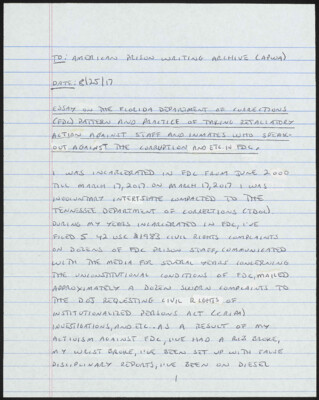 TO: AMERICAN PRISON WRITING ARCHIVE (APWA)
DATE: 8/25/17
ESSAY ON THE FLORIDA DEPARTMENT OF CORRECTIONS
(FDC) PATTERN AND PRACTICE OF TAKING RETALIATORY
ACTION AGAINST STAFF AND INMATES WHO SPEAK-
OUT AGAINST THE CORRUPTION AND ETC. IN FDC.
I WAS INCARCERATED IN FDC FROM JUNE 2000
TILL MARCH 17, 2017 ON MARCH 17, 2017 I WAS
INVOLUNTARY INTERSTATE COMPACTED TO THE
TENNESSEE DEPARTMENT OF CORRECTIONS (TDOC).
DURING MY YEARS INCARCERATED IN FDC, I'VE
FILED 5 42 USC §1983 CIVIL RIGHTS COMPLAINTS
ON DOZENS OF FDC PRISON STAFF, COMMUNICATED
WITH THE MEDIA FOR SEVERAL YEARS CONCERNING
THE UNCONSTITUTIONAL CONDITIONS OF FDC, MAILED
APPROXIMATELY A DOZEN SWORN COMPLAINTS TO
THE DOJ REQUESTING CIVIL RIGHTS OF
INSTITUTIONALIZED PERSONS ACT (CRIPA)
INVESTIGATIONS, AND ETC. AS A RESULT OF MY
ACTIVISM AGAINST FDC, I'VE HAD A RIB BROKE,
MY WRIST BROKE, I'VE BEEN SET UP WITH FALSE
DISCIPLINARY REPORTS, I'VE BEEN ON DIESEL
1